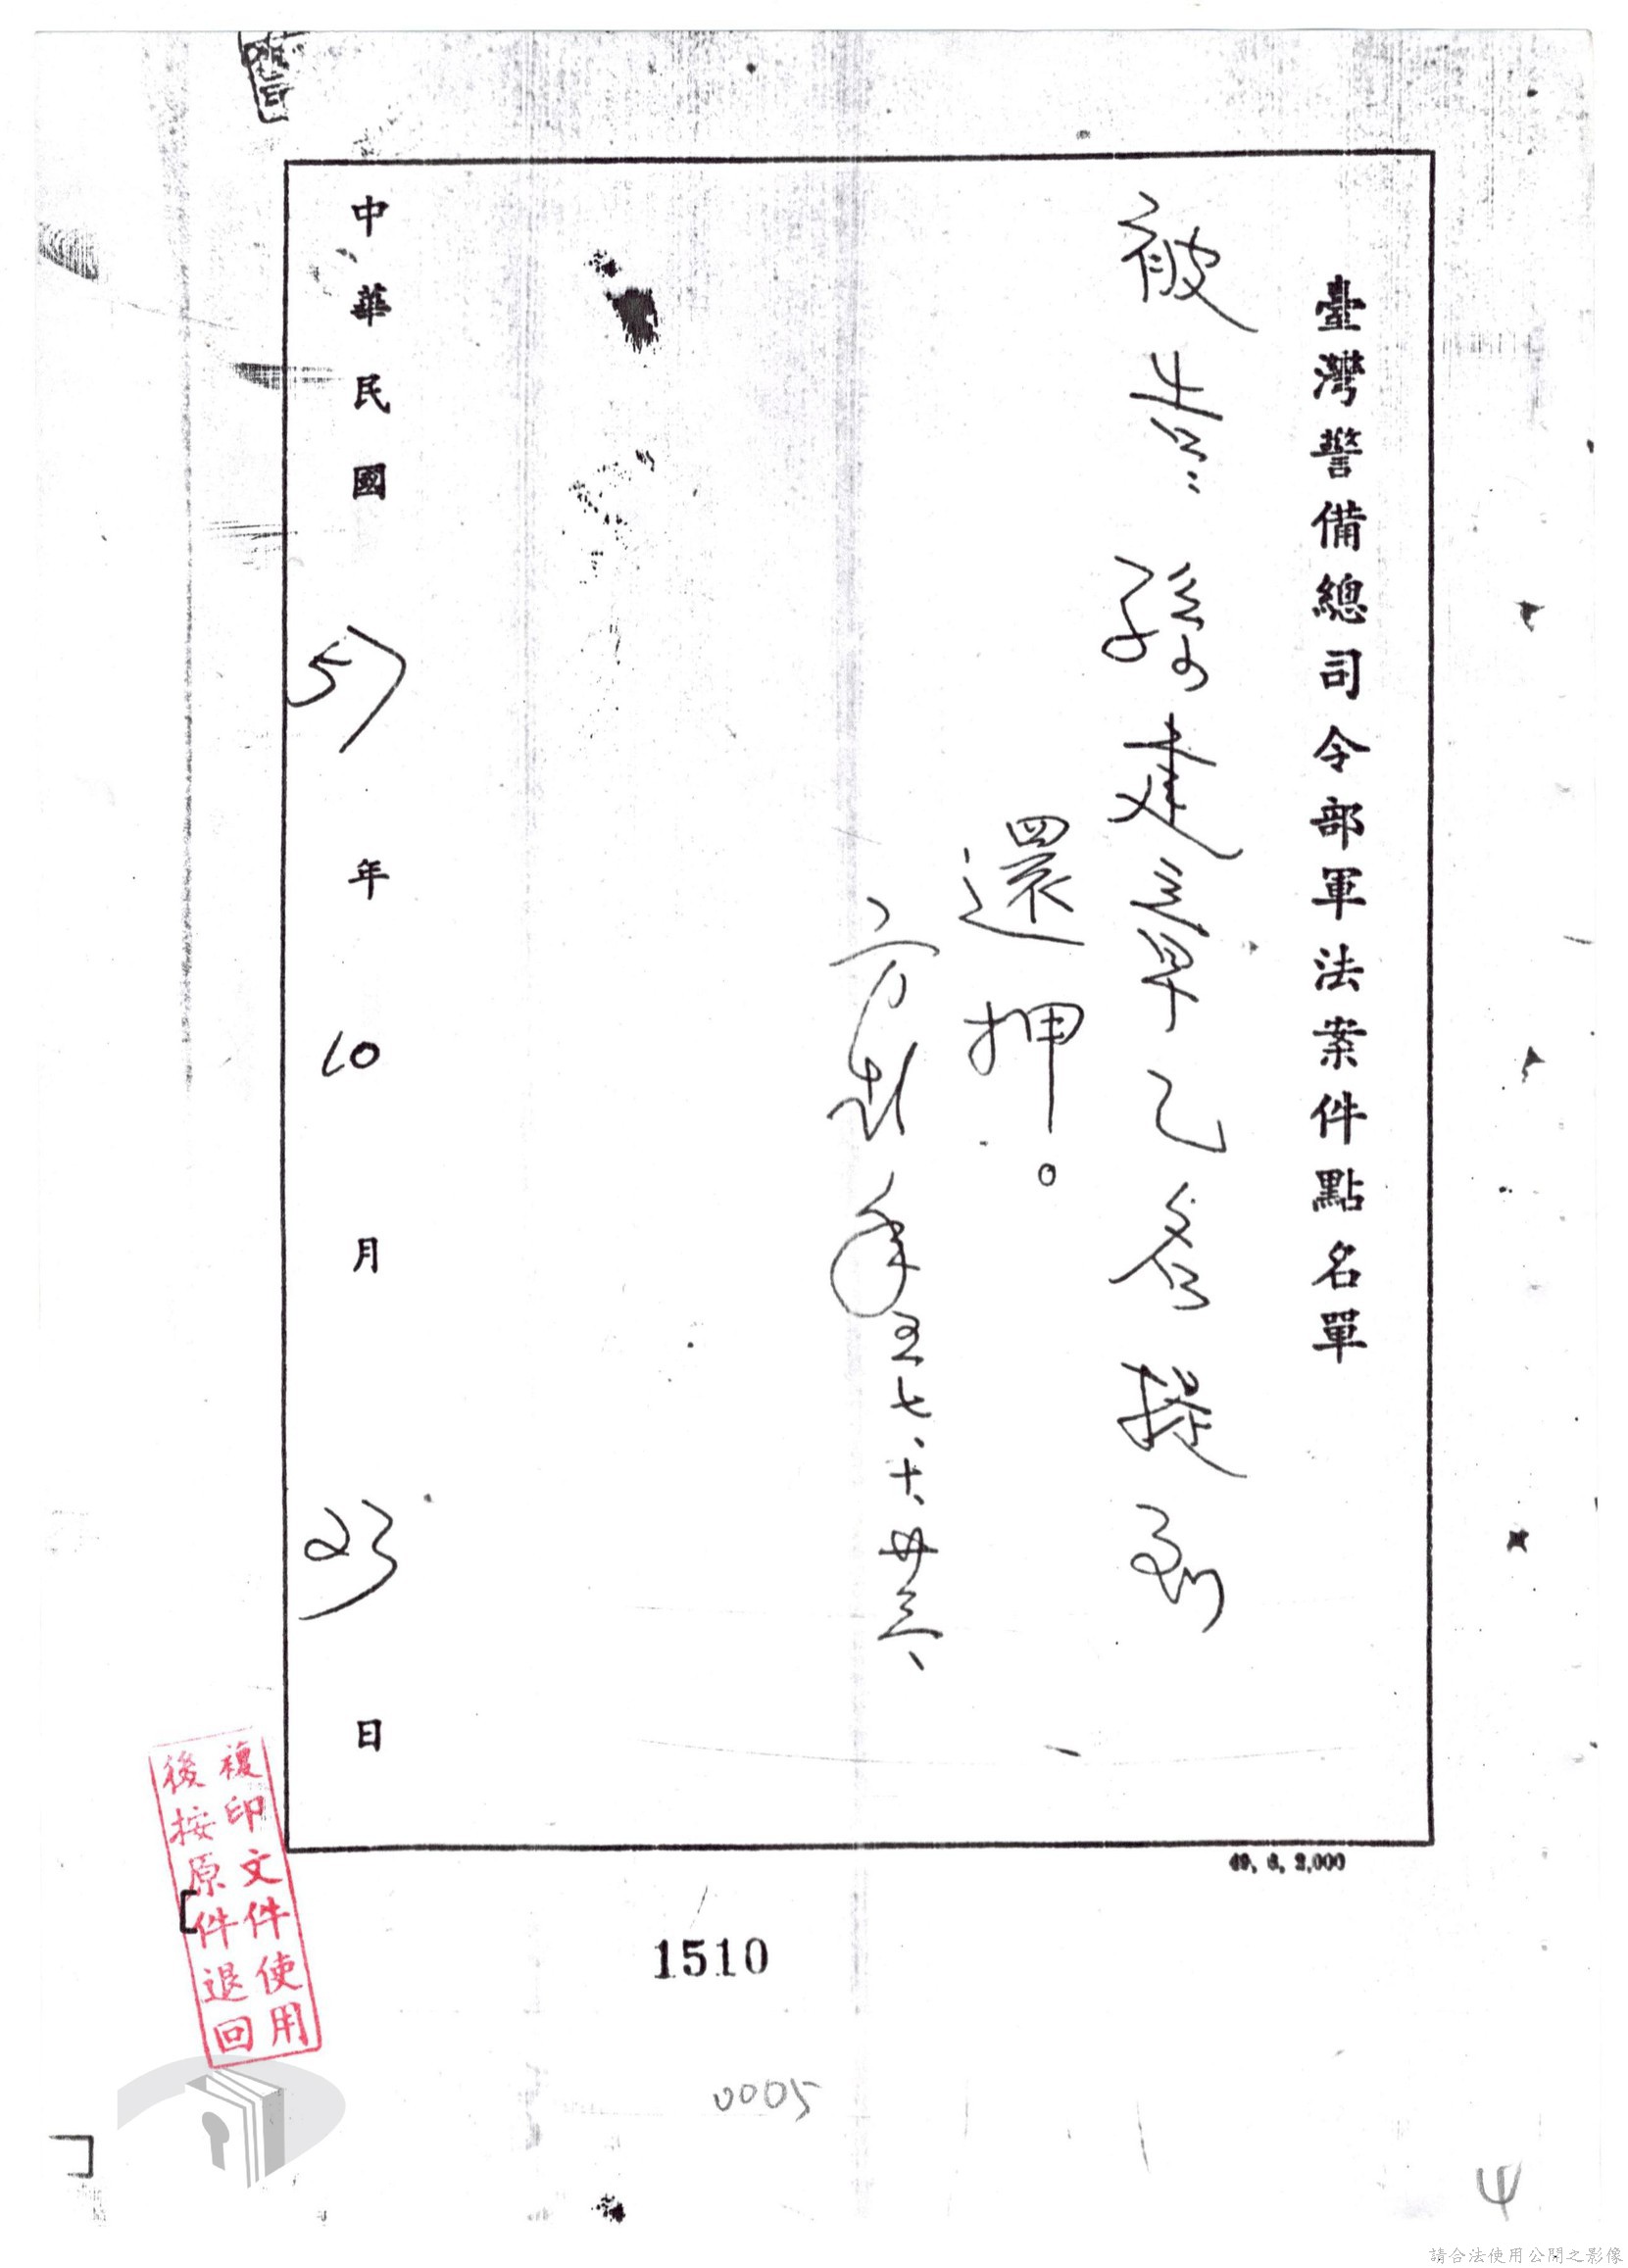 臺灣警備總司令部軍法案件點名單
被告：孫建章乙名提到
還押。
五七、十、廿三、
中華民國57年10月23日
49, 6, 2,000
複印文件使用
後按原件退回
1510
0005
請合法使用公開之影像